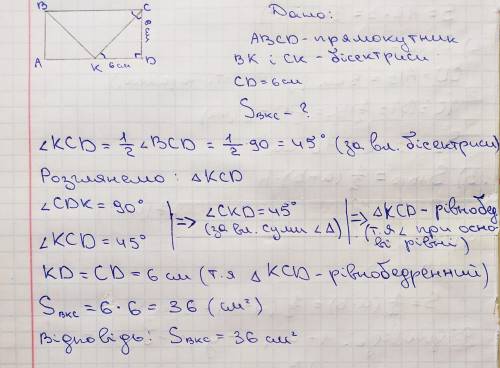 B C
6 см
A K 6см D
Дано:
ABCD - прямокутник
BK і CK - бісектриси
CD = 6см
S вкс - ?
∠KCD = 1/2 ∠BCD = 1/2 90 = 45° (за вл. бісектриси)
Розглянемо: △KCD
∠CDK = 90°
∠KCD = 45°
=> ∠CKD = 45°
(за вл. суми ∠△)
=> △KCD - рівнобед.
(т.я ∠ при осно-
ві рівні)
KD = CD = 6 см (т.я △KCD - рівнобедренний)
S вкс = 6 · 6 = 36 (см²)
Відповідь: S вкс = 36 см²